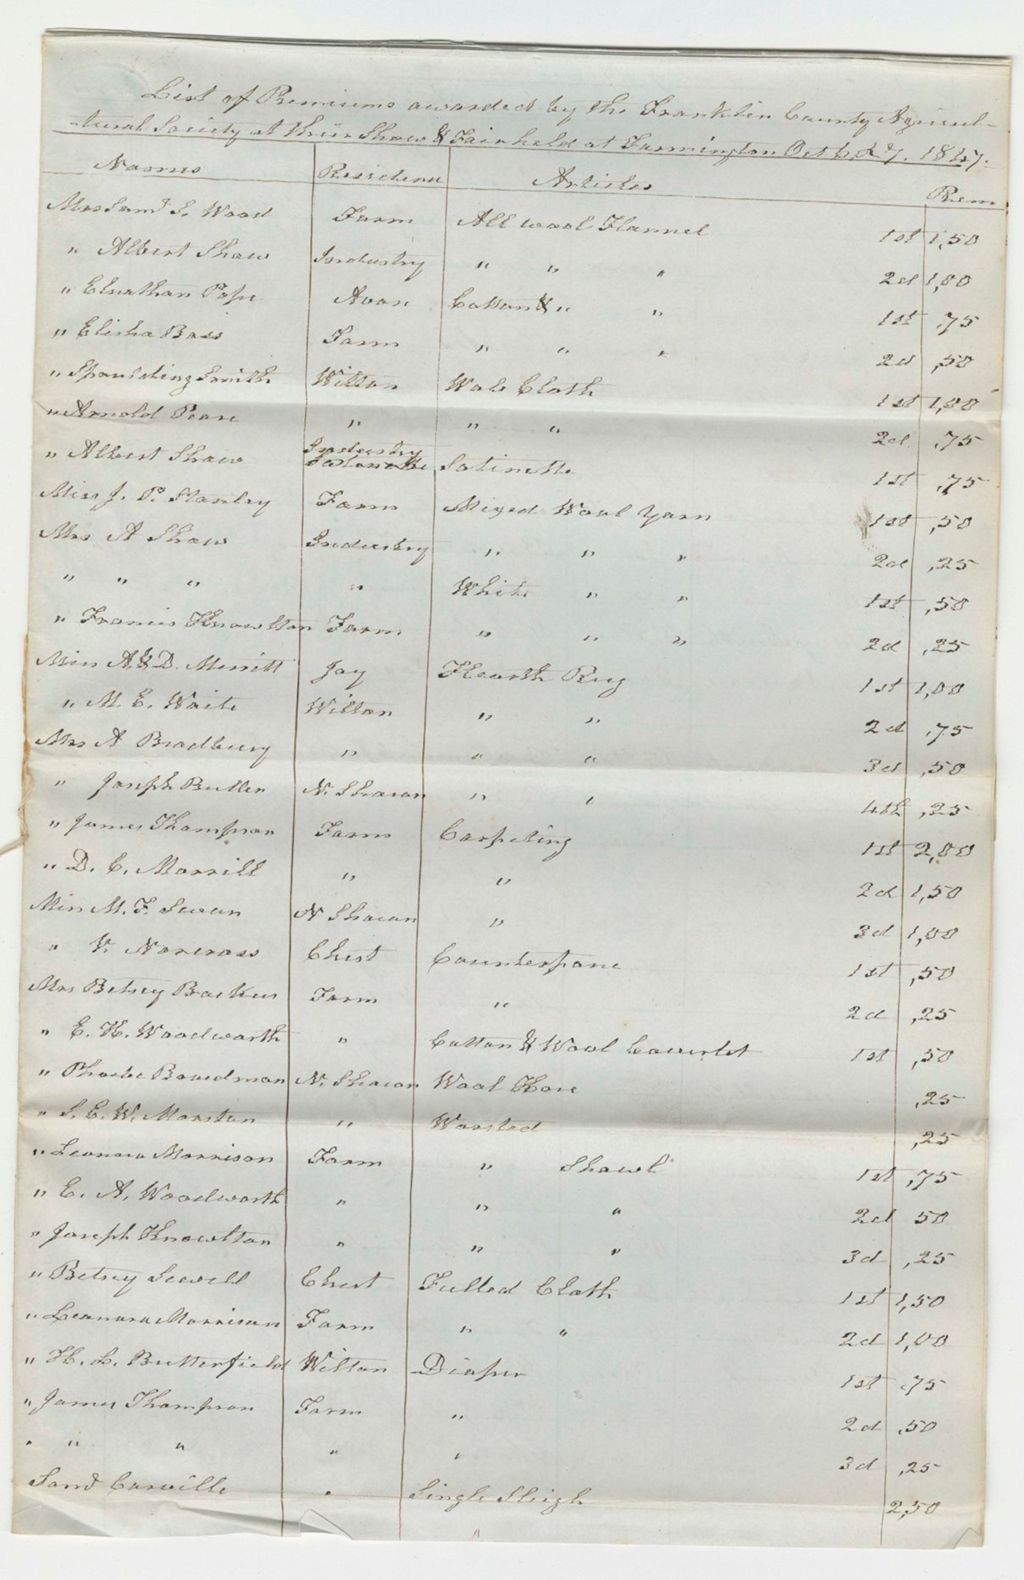 List of Premiums awarded by the Franklin County Agricul-
-tural Society at their Show & Fair held at Farmington Oct 6 & 7. 1847.
Names Residence Articles Prem
Mrs Saml S. Wood Farm All wool Flannel 1st 1,50
" Albert Shaw Industry " " " 2d 1,00
" Elnathan Pope Avon Cotton & " " 1st ,75
" Elisha Bass Farm " " " 2d ,50
" Spaulding Smith Wilton Wale Cloth 1st 1,00
" Arnold " " " 2d ,75
" Albert Shaw Industry Satinette 1st ,75
Miss J. P. Stanley Farm Mixed Wool Yarn 1st ,50
Mrs A Shaw Industry " " " 2d ,25
" " " " White " " 1st ,50
" Francis Knowlton Farm " " " 2d ,25
Miss A. & D. Merritt Jay Hearth Rug 1st 1,00
" M. E. Waite Wilton " " 2d ,75
Mrs A Bradbury " " " 3d ,50
" Joseph Butler N. Sharon " " 4th ,25
" James Thompson Farm Carpeting 1st 2,00
" D. C. Morrill " " 2d 1,50
Miss M. F. Swan N Sharon " 3d 1,00
" V. Norcross Chest Counterpane 1st ,50
Mrs Betsey Backus Farm " 2d ,25
" E. H. Woodworth " Cotton & Wool Coverlet 1st ,50
" Phoebe Boardman N. Sharon Wool Hose ,25
" S. E. W. Marston " Worsted ,25
" Leonora Morrison Farm " Shawl 1st ,75
" E. A. Woodworth " " " 2d 50
" Joseph Knowlton " " " 3d ,25
" Betsey Sewell Chest Fulled Cloth 1st 1,50
" Leonora Morrison Farm " " 2d 1,00
" H. L. Butterfield Wilton Diaper 1st ,75
" James Thompson Farm " 2d ,50
" " " " " 3d ,25
Saml Carville " Single Sleigh 2,50